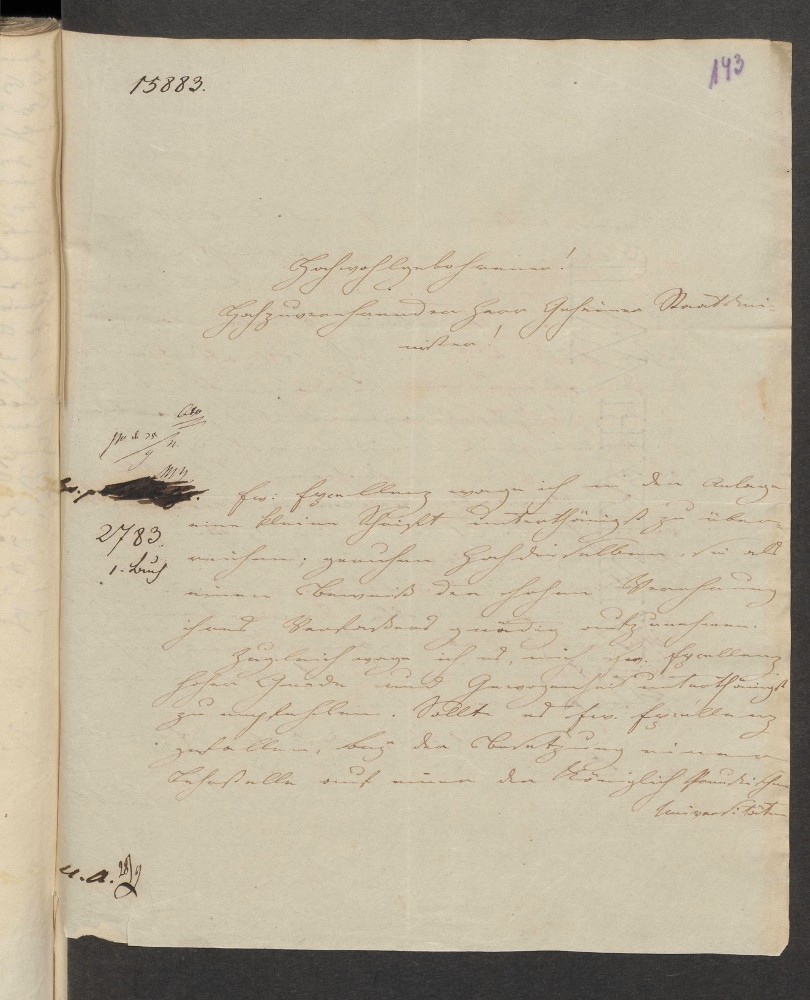 15883.
143
Hochwohlgebohrener!
Hochzuverehrender Herr Geheimer Staatsmi-
nister!
2783.
1. Buch
Ew: Excellenz wage ich in der Anlage
eine kleine Schrift unterthänigst zu über-
reichen; geruhen Hochdieselben, sie als
einen Beweiß der hohen Verehrung
ihres Verfaßers gnädig aufzunehmen.
Zugleich wage ich es, mich Ew. Excellenz
hoher Gnade und Gewogenheit unterthänigst
zu empfehlen. Sollte es Ew. Excellenz
gefallen, bey der Besetzung einer
Lehrstelle auf einer der Königlich Preußischen
Universitäten
u. A. 28/9